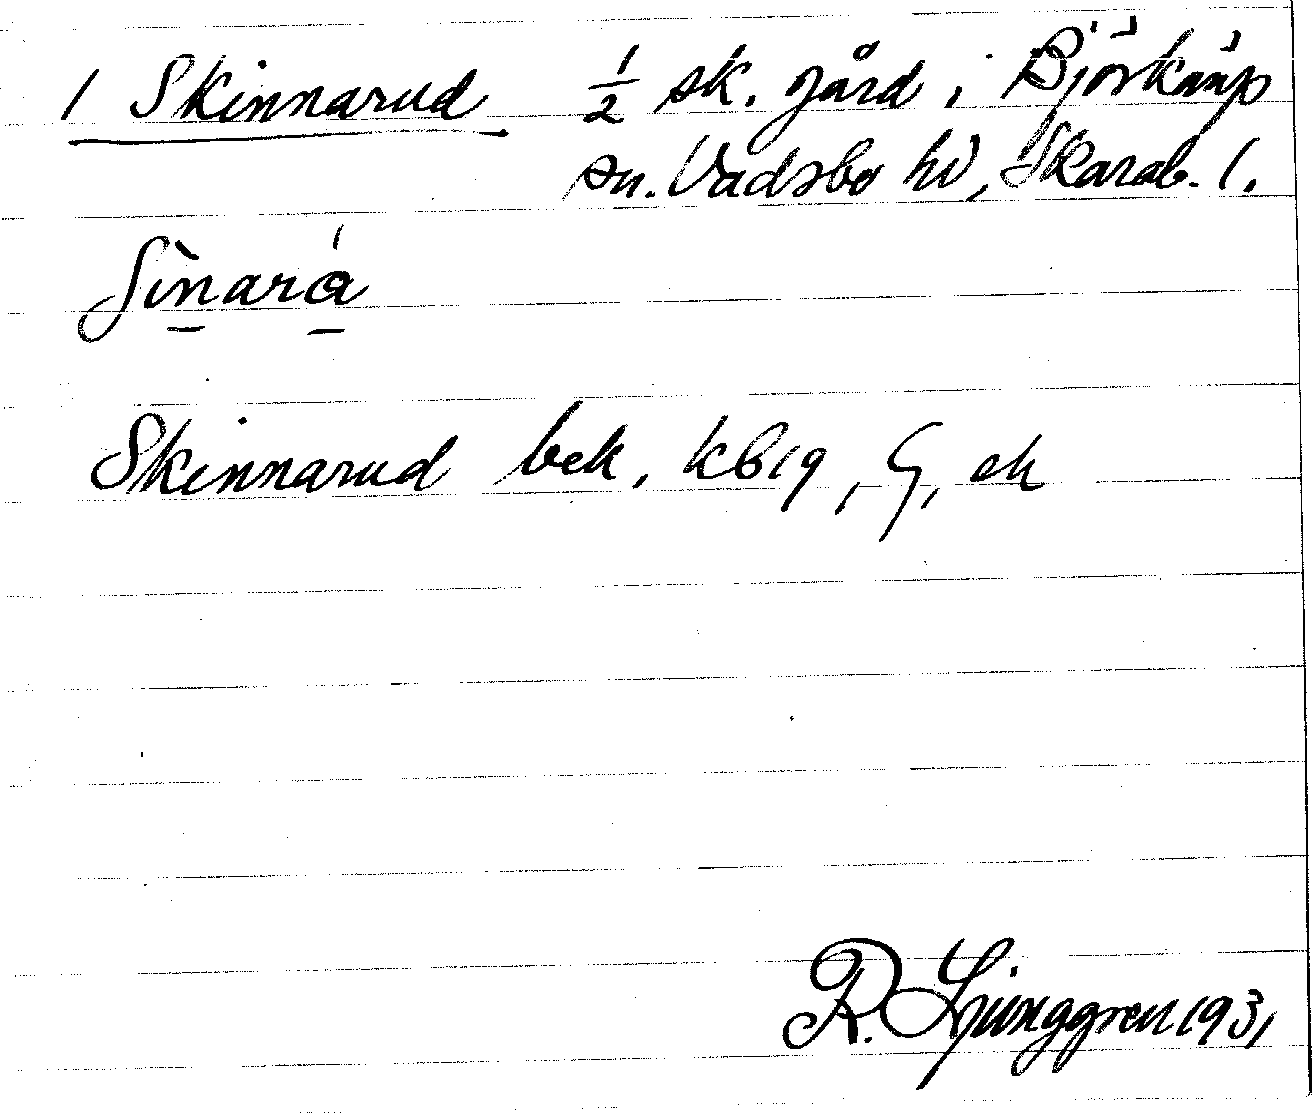 1 Skinnarud ½ sk. gård i Björkäng
sn. Vadsbo hd, Skarab. l.
Skinnarud bek. KB19, G, ek
R. Ljunggren 1931